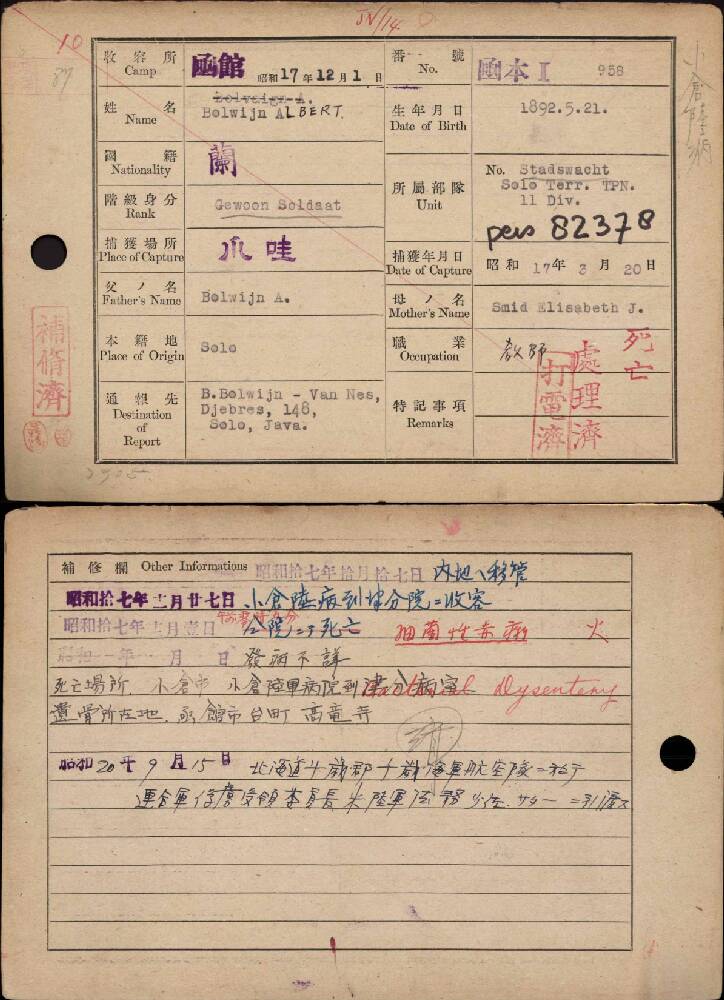 JN/14
10
87
收容所
Camp
函館
昭和17年12月1日
番號
No.
函本 I 958
小倉陸病
姓名
Name
Bolwijn ALBERT.
生年月日
Date of Birth
1892.5.21.
國籍
Nationality
蘭
所屬部隊
Unit
No. Stadswacht
Solo Terr. TPN.
11 Div.
pers 82378
階級身分
Rank
Gewoon Soldaat
捕獲場所
Place of Capture
爪哇
捕獲年月日
Date of Capture
昭和 17年 3月 20日
父ノ名
Father's Name
Bolwijn A.
母ノ名
Mother's Name
Smid Elisabeth J.
本籍地
Place of Origin
Solo
職業
Occupation
教師
死亡
處理濟
打電濟
補脩濟
通報先
Destination
of
Report
B.Bolwijn - Van Nes,
Djebres, 148,
Solo, Java.
特記事項
Remarks
補修欄 Other Informations 昭和拾七年拾月拾七日 内地ヘ移管
昭和拾七年十一月廿七日 小倉陸病到津分院ニ收容
昭和拾七年十二月壹日 分院ニテ死亡 細菌性赤痢 火
昭和 年 月 日 發病不詳
死亡場所 小倉市 小倉陸軍病院到津分病室 Bacterial Dysentery
遺骨所在地 函館市台町 高竜寺
昭和20年9月15日 北海道千歳郡千歳海軍航空隊ニ於テ
連合軍俘虜受領委員長米陸軍 少佐 ニ引渡ス